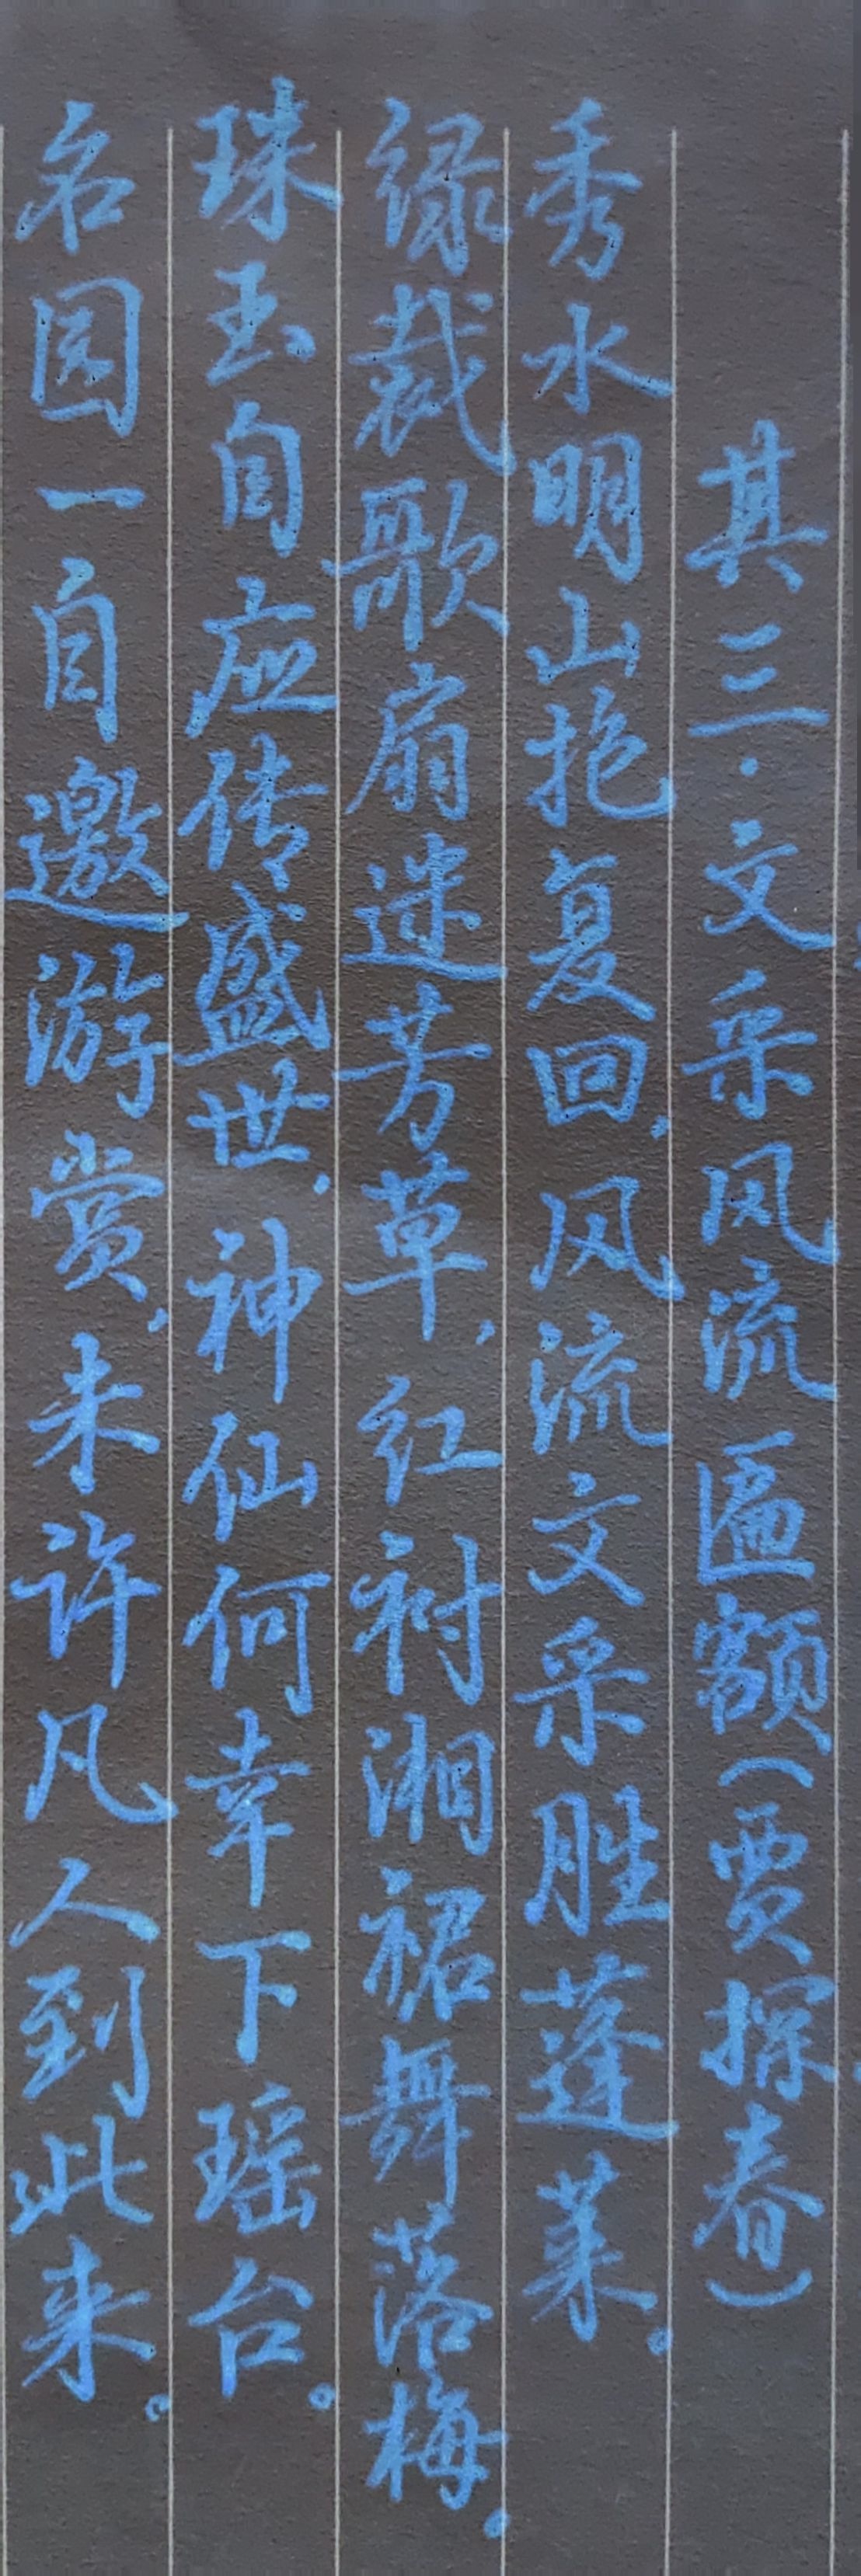 其三·文采风流匾额（贾探春）
秀水明山抱复回，风流文采胜蓬莱。
绿裁歌扇迷芳草，红衬湘裙舞落梅。
珠玉自应传盛世，神仙何幸下瑶台。
名园一自邀游赏，未许凡人到此来。